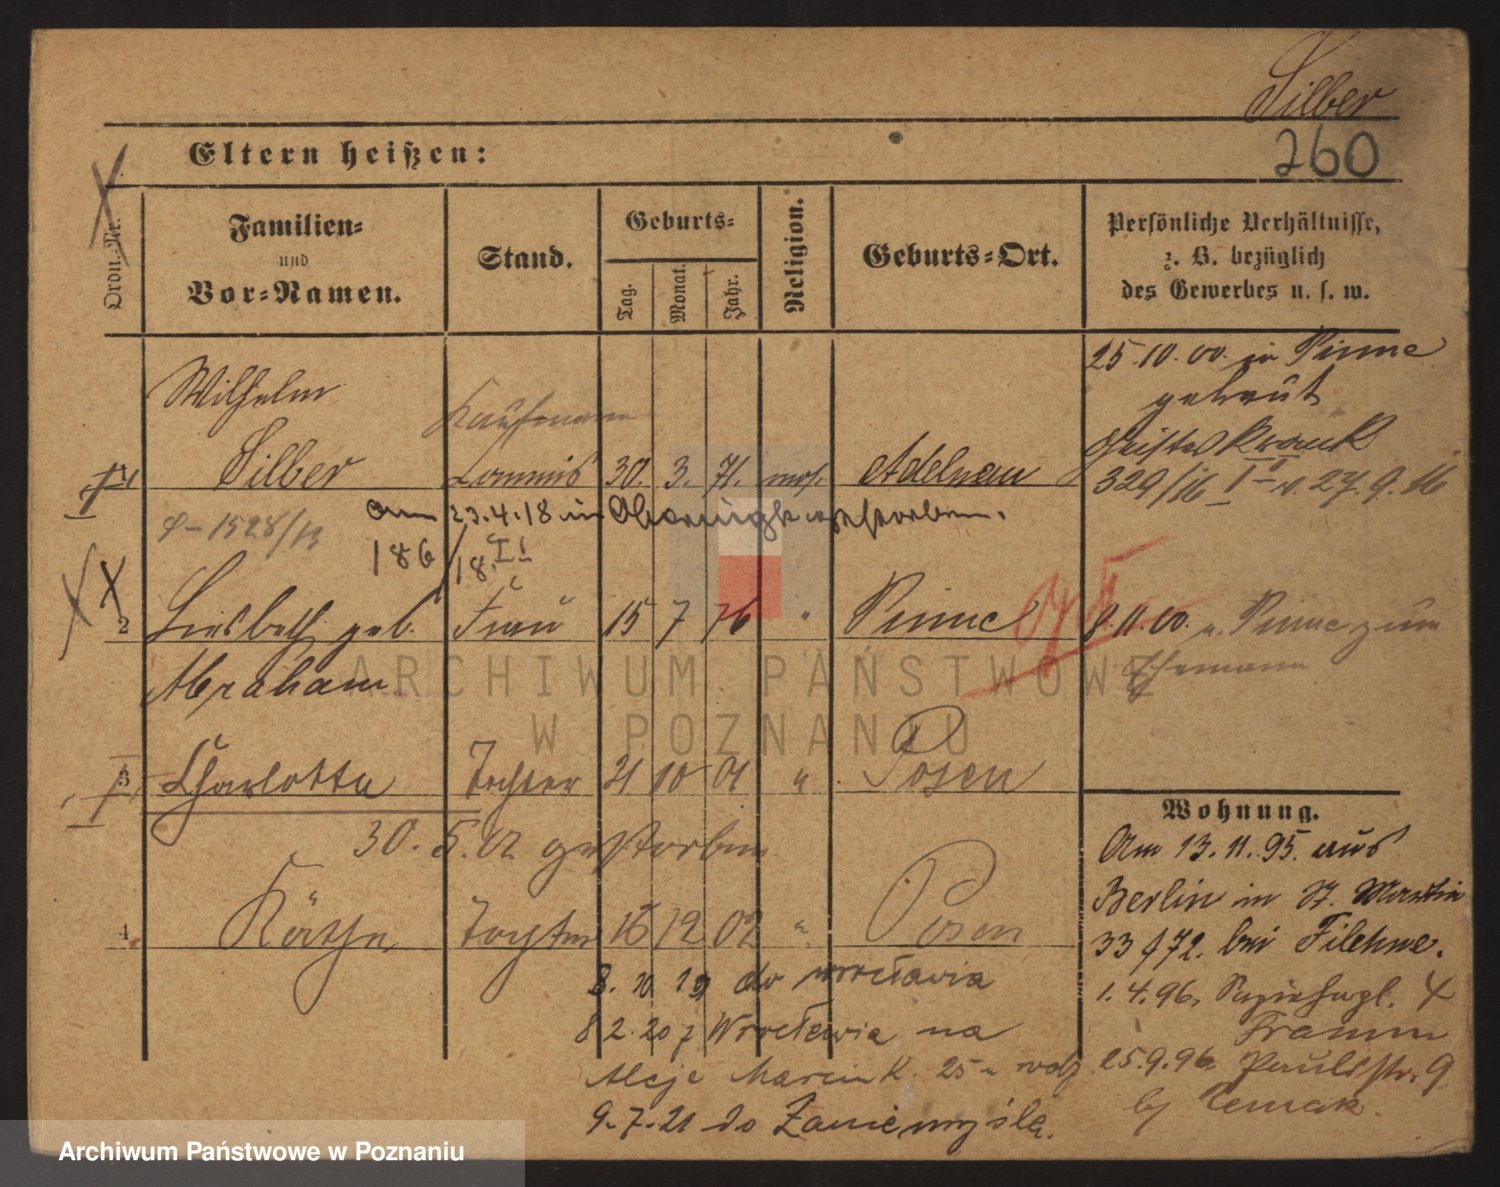 Silber
260
Eltern heißen:
Ordn.-Nr.
Familien-
und
Vor-Namen.
Stand.
Geburts-
Tag.
Monat.
Jahr.
Religion.
Geburts-Ort.
Persönliche Verhältnisse,
z. B. bezüglich
des Gewerbes u. s. w.
25.10.00. in Pinne
getraut
Wilhelm
Kaufmann
Geisteskrank
1 Silber Commis 30. 3. 71. mos. Adelnau
329/16 I v. 27.9.16
1528/13
am 23.4.18 in Obornigk verstorben.
186/18. II
2 Liesbeth geb. Frau 15 7 76 " Pinne
8.11.00. v. Pinne zum
Ehemann
Abraham
3 Charlotte Tochter 21 10 01 " Posen
30. 5. 02 gestorben
4 Käthe Tochter 16 12 02 " Posen
Wohnung.
Am 13.11.95. aus
Berlin in St. Martin
33 bei Filehne.
1.4.96.
25.9.96. Paulistr. 9
8. 10 19 do Wrocławia
8 2. 20 z Wrocławia na
Aleje Marcink. 25
9.7.21 do Zaniemyśla.
ARCHIWUM PAŃSTWOWE
W POZNANIU
Archiwum Państwowe w Poznaniu